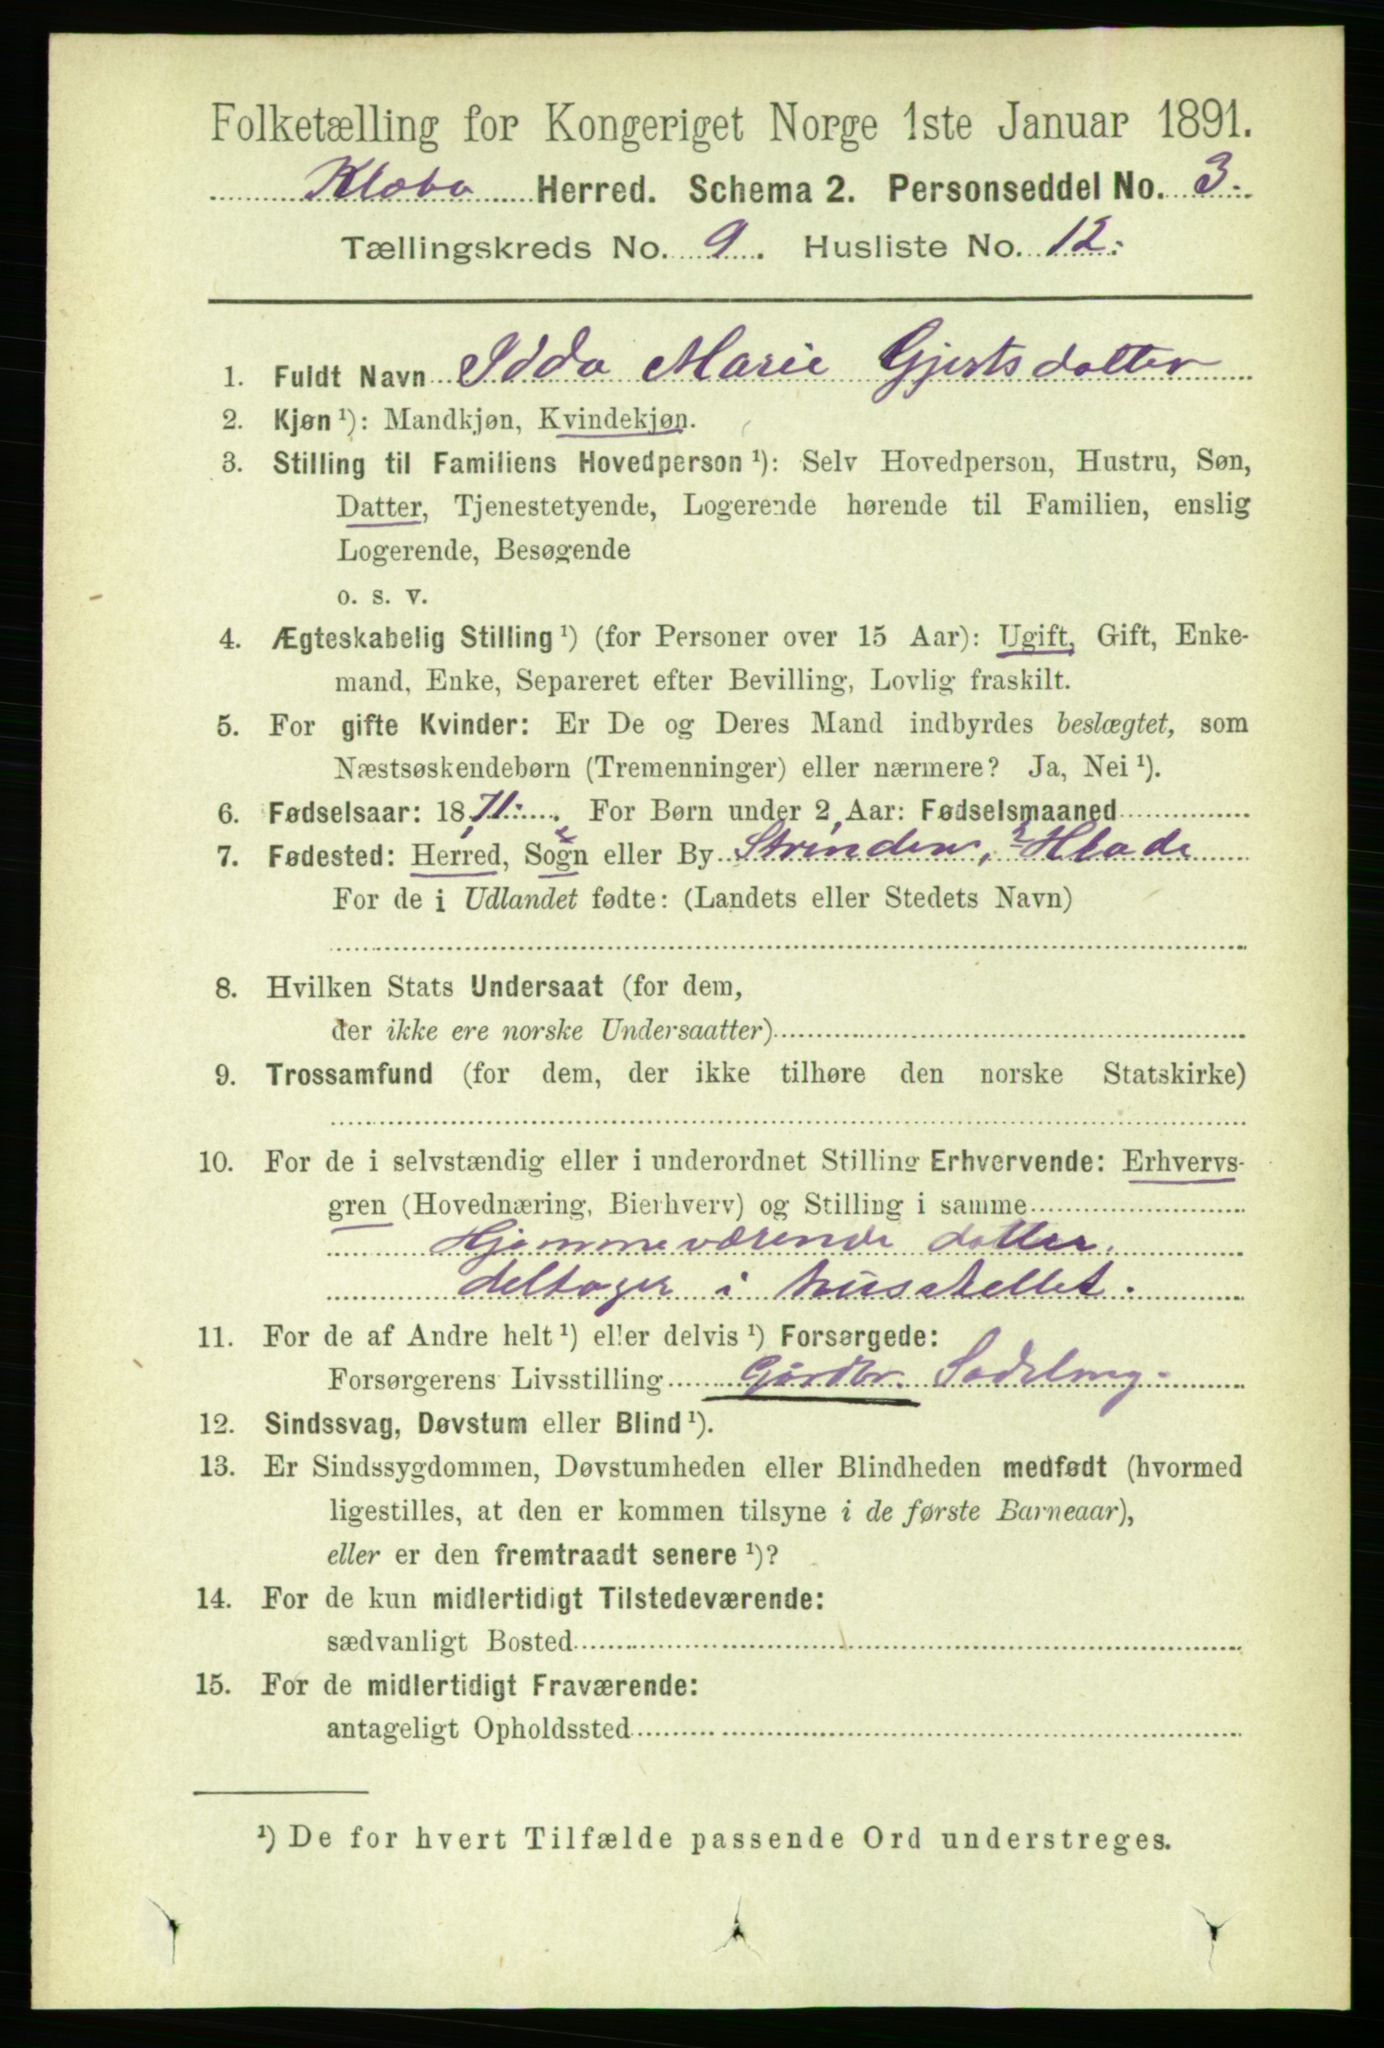 Folketælling for Kongeriget Norge 1ste Januar 1891.
Klæbo Herred. Schema 2. Personseddel No. 3.
Tællingskreds No. 9. Husliste No. 12.
1. Fuldt Navn Idda Marie Gjertsdatter
2. Kjøn ¹): Mandkjøn, Kvindekjøn.
3. Stilling til Familiens Hovedperson ¹): Selv Hovedperson, Hustru, Søn,
Datter, Tjenestetyende, Logerende hørende til Familien, enslig
Logerende, Besøgende
o. s. v.
4. Ægteskabelig Stilling ¹) (for Personer over 15 Aar): Ugift, Gift, Enke-
mand, Enke, Separeret efter Bevilling, Lovlig fraskilt.
5. For gifte Kvinder: Er De og Deres Mand indbyrdes beslægtet, som
Næstsøskendebørn (Tremenninger) eller nærmere? Ja, Nei ¹).
6. Fødselsaar: 1871. For Børn under 2 Aar: Fødselsmaaned
7. Fødested: Herred, Sogn eller By Strinden, Hlade
For de i Udlandet fødte: (Landets eller Stedets Navn)
8. Hvilken Stats Undersaat (for dem,
der ikke ere norske Undersaatter)
9. Trossamfund (for dem, der ikke tilhøre den norske Statskirke)
10. For de i selvstændig eller i underordnet Stilling Erhvervende: Erhvervs-
gren (Hovednæring, Bierhverv) og Stilling i samme
Hjemmeværende datter,
deltager i husstellet.
11. For de af Andre helt ¹) eller delvis ¹) Forsørgede:
Forsørgerens Livsstilling Gårdbr.
12. Sindssvag, Døvstum eller Blind ¹).
13. Er Sindssygdommen, Døvstumheden eller Blindheden medfødt (hvormed
ligestilles, at den er kommen tilsyne i de første Barneaar),
eller er den fremtraadt senere ¹)?
14. For de kun midlertidigt Tilstedeværende:
sædvanligt Bosted
15. For de midlertidigt Fraværende:
antageligt Opholdssted
¹) De for hvert Tilfælde passende Ord understreges.